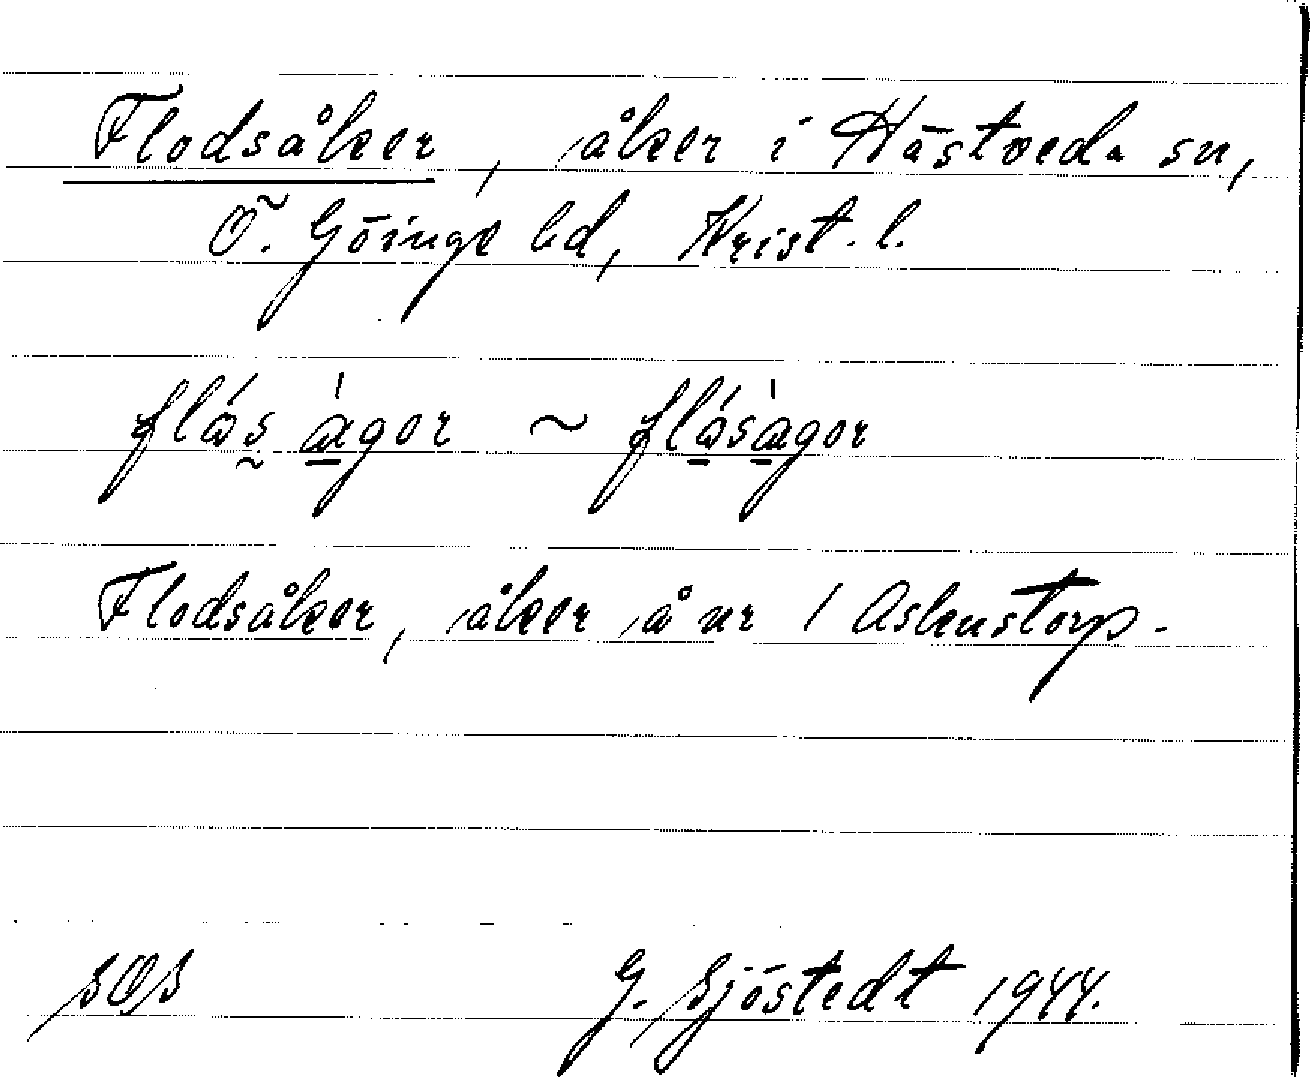 Flodsåker, åker i Hästveda sn,
Ö. Göinge hd, Krist. l.
flǿs ǻgor ~ flǿsàgor
Flodsåker, åker å nr 1 Askenstorp.
SOS G. Sjöstedt 1944.